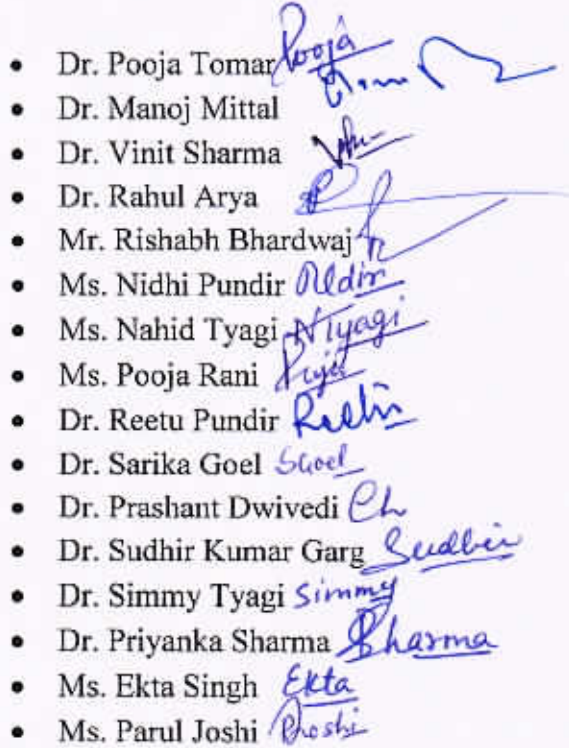 • Dr. Pooja Tomar Pooja
• Dr. Manoj Mittal
• Dr. Vinit Sharma
• Dr. Rahul Arya
• Mr. Rishabh Bhardwaj
• Ms. Nidhi Pundir
• Ms. Nahid Tyagi NTyagi
• Ms. Pooja Rani Puja
• Dr. Reetu Pundir Reetu
• Dr. Sarika Goel SGoel
• Dr. Prashant Dwivedi
• Dr. Sudhir Kumar Garg Sudhir
• Dr. Simmy Tyagi Simmy
• Dr. Priyanka Sharma Sharma
• Ms. Ekta Singh Ekta
• Ms. Parul Joshi PJoshi